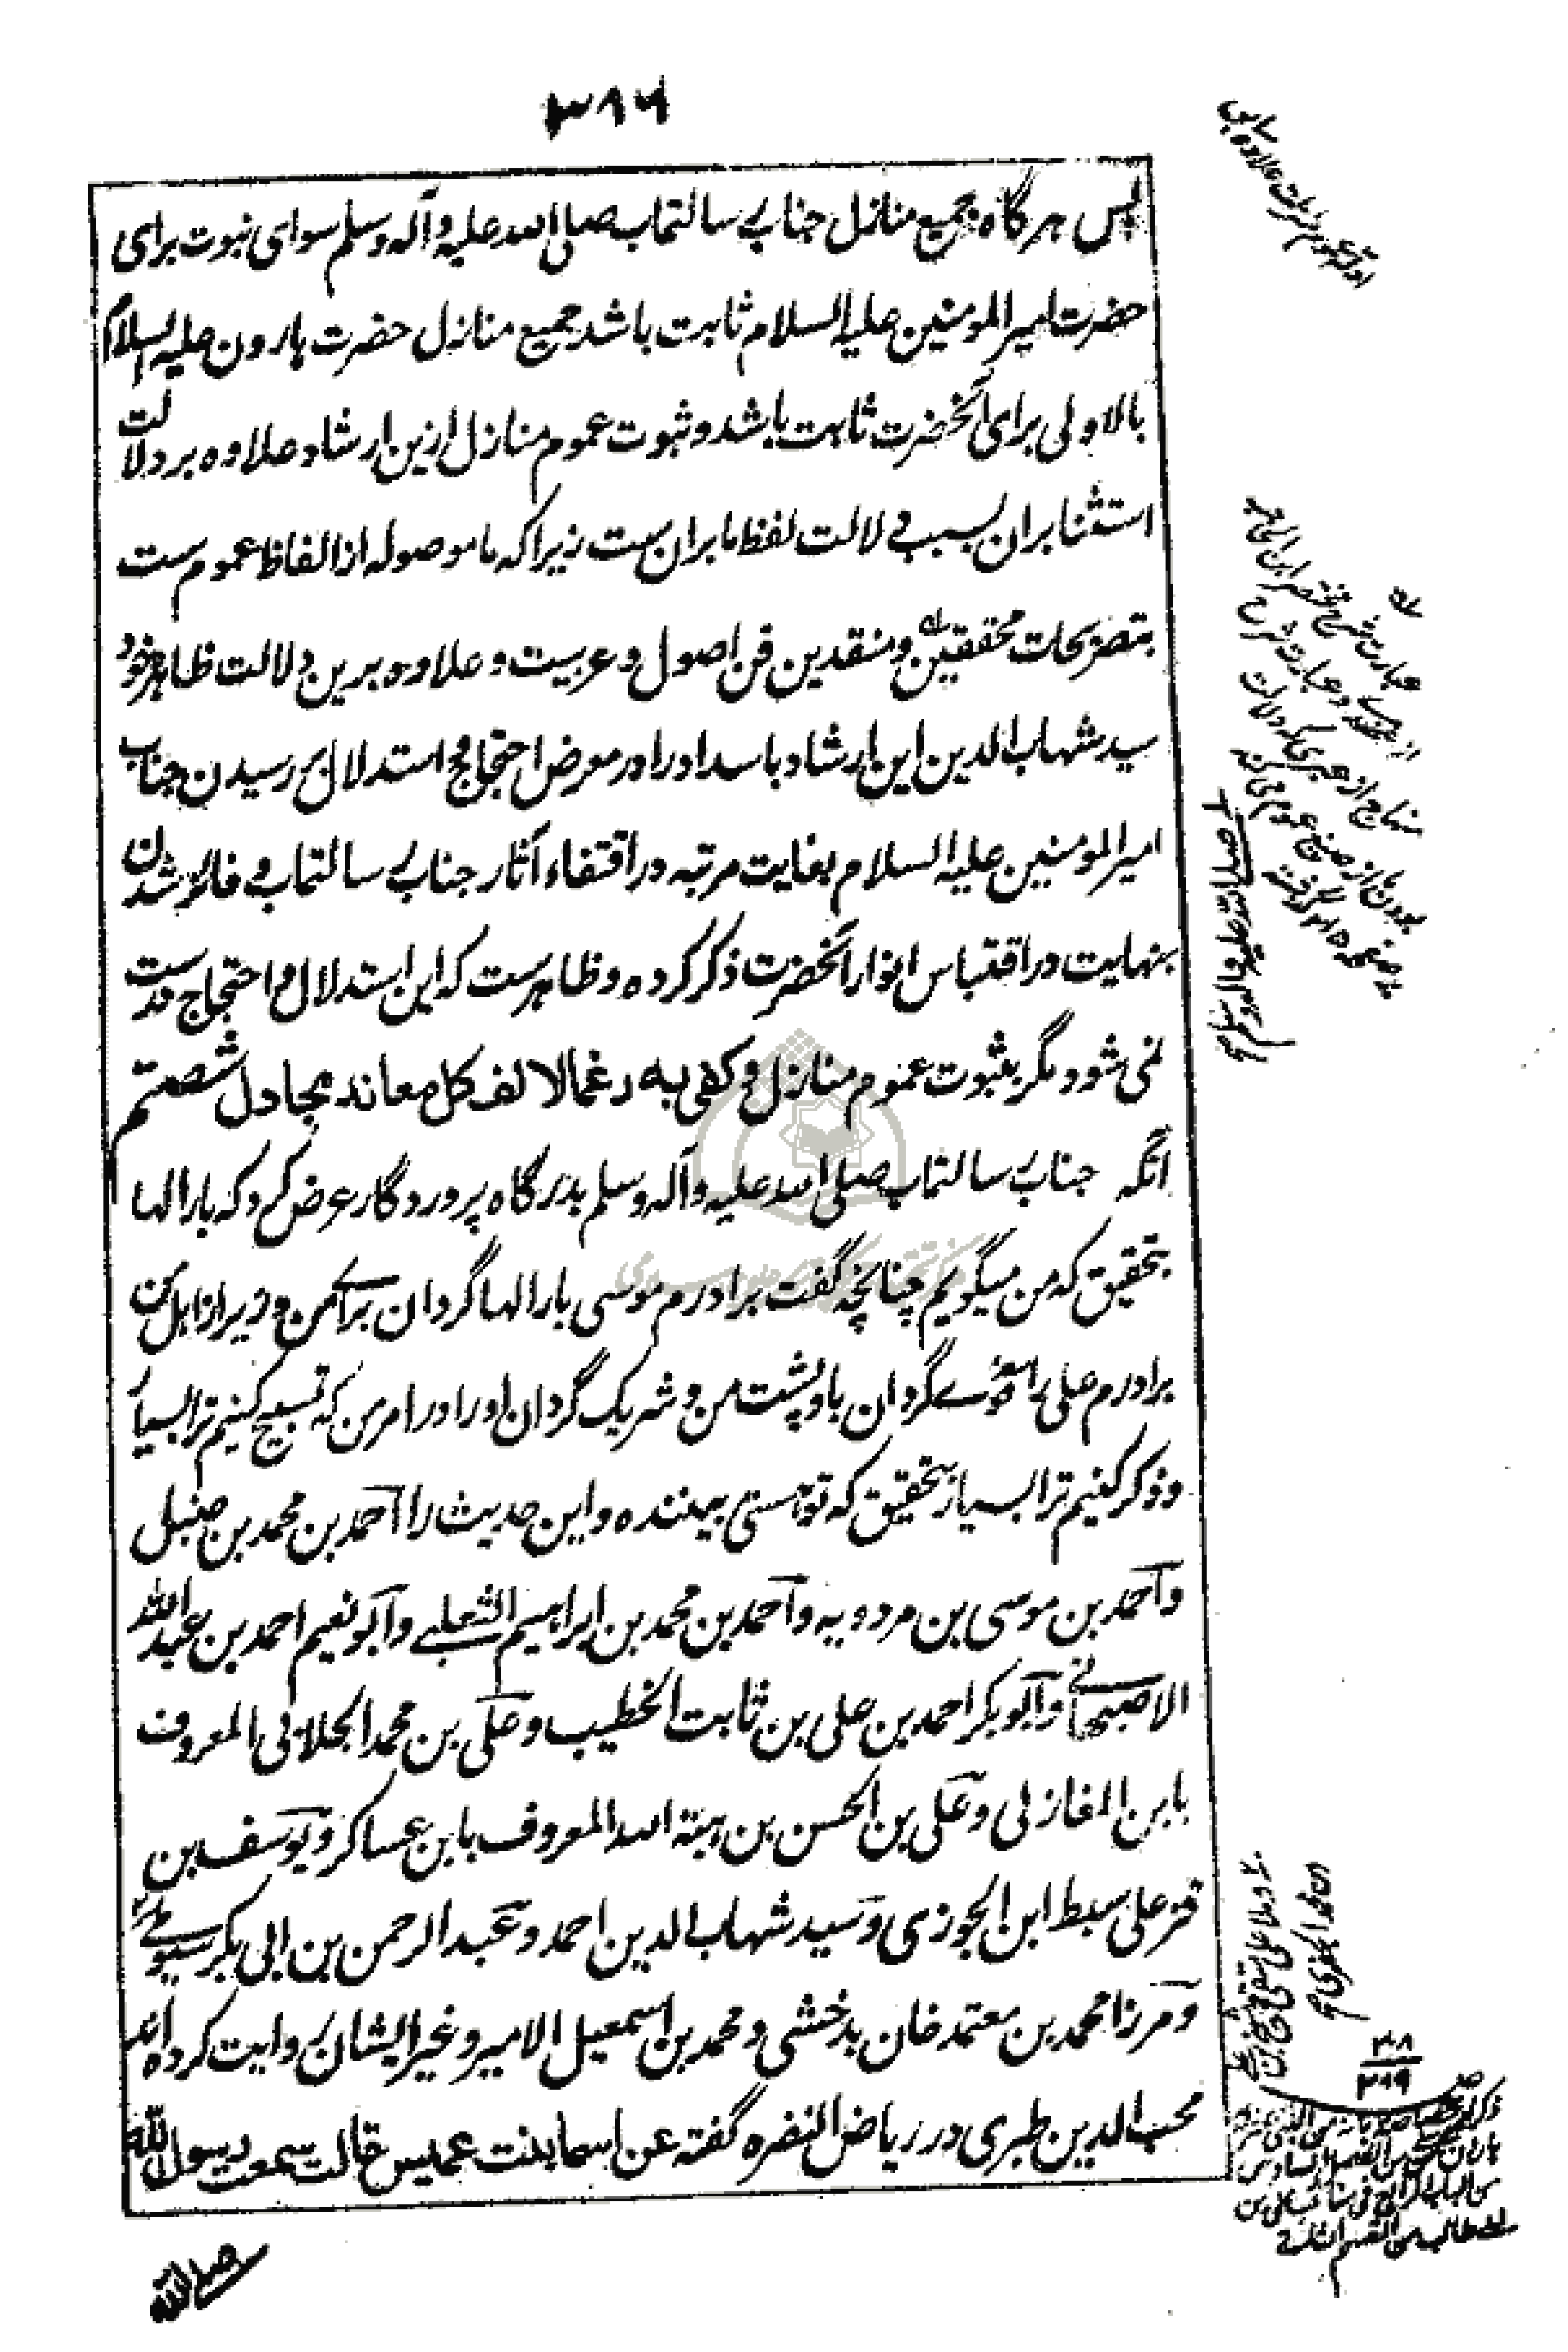 ۳۸۶
پس هرگاه جمیع منازل جناب رسالتماب صلی الله علیه و آله و سلم سوای نبوت برای
حضرت امیر المومنین علیه السلام ثابت باشد جمیع منازل حضرت هارون علیه السلام
بالاولی برای آنحضرت ثابت باشد و ثبوت عموم منازل ازین ارشاد علاوه بر دلالت
استثنا بران بسبب دلالت لفظ ما بران ست زیرا که ما موصوله از الفاظ عموم ست
بتصریحات محققین و منقدین فن اصول و عربیت و علاوه برین دلالت ظاهر خود
سید شهاب الدین این ارشاد باسداد را در معرض احتجاج و استدلال بر رسیدن جناب
امیر المومنین علیه السلام بغایت مرتبه در اقتفاء آثار جناب رسالتماب و فائز شدن
بنهایت در اقتباس انوار آنحضرت ذکر کرده و ظاهرست که این استدلال و احتجاج درست
نمی شود مگر بثبوت عموم منازل و کفی به رغما لانف کل معاند مجادل شصتم
آنکه جناب رسالتماب صلی الله علیه و آله و سلم بدرگاه پروردگار عرض کرد که بار الها
بتحقیق که من میگویم چنانچه گفت برادرم موسی بار الها گردان برای من وزیر از اهل من
برادرم علی را قوی گردان باو پشت من و شریک گردان او را در امر من که تسبیح کنیم ترا بسیار
و ذکر کنیم ترا بسیار بتحقیق که تو هستی بیننده و این حدیث را احمد بن محمد بن حنبل
و احمد بن موسی بن مردویه و احمد بن محمد بن ابراهیم الثعلبی و ابو نعیم احمد بن عبد الله
الاصبهانی و ابو بکر احمد بن علی بن ثابت الخطیب و علی بن محمد الجلابی المعروف
بابن المغازلی و علی بن الحسن بن هبة الله المعروف بابن عساکر و یوسف بن
قزعلی سبط ابن الجوزی و سید شهاب الدین احمد و عبد الرحمن بن ابی بکر سیوطی
و مرزا محمد بن معتمد خان بدخشی و محمد بن اسمعیل الامیر و غیر ایشان روایت کرده اند
محب الدین طبری در ریاض النضره گفته عن اسما بنت عمیس قالت سمعت رسول الله
صلی الله
صلی الله علیه و آله و سلم
۳۰۸
۲۱۹